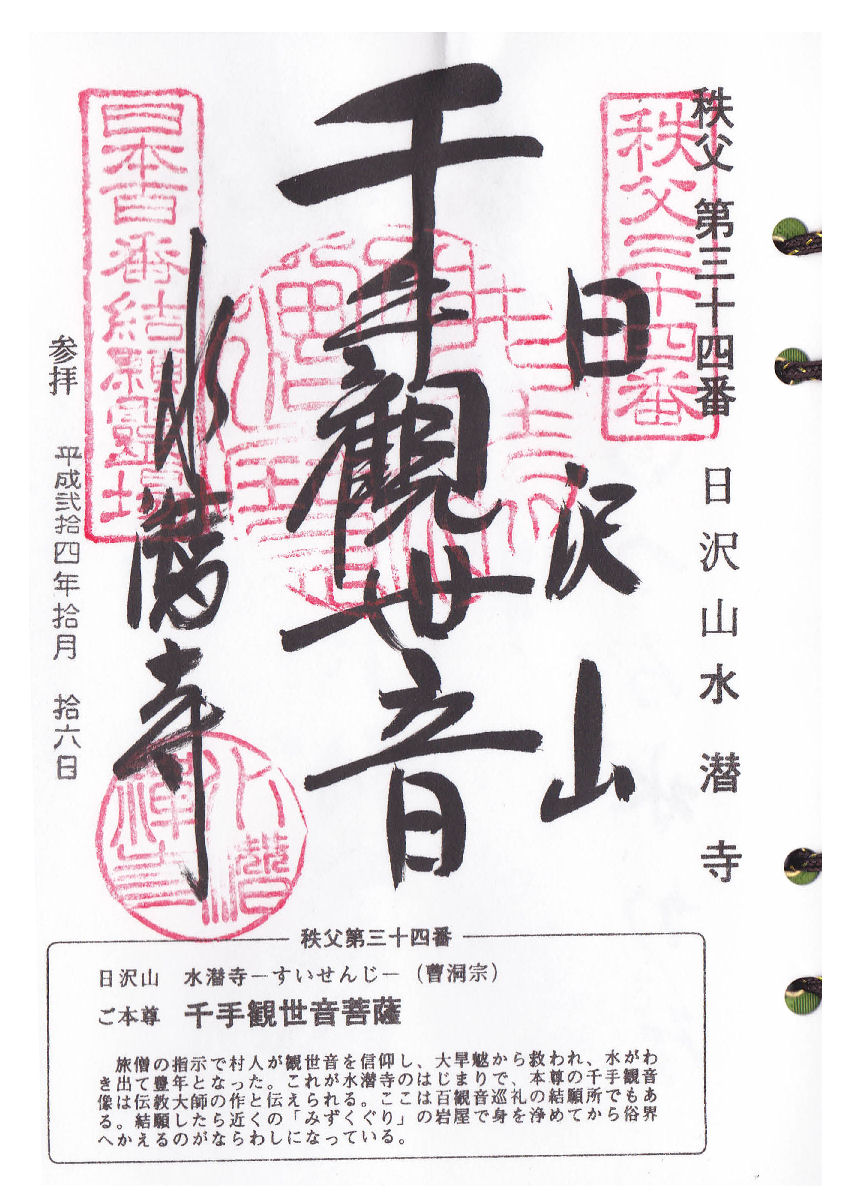 秩父 第三十四番 日沢山水潜寺
秩父三十四番
日沢山
千手観世音
水潜寺
日本百番結願霊場
参拝 平成弐拾四年拾月 拾六日
秩父第三十四番
日沢山 水潜寺－すいせんじ－（曹洞宗）
ご本尊 千手観世音菩薩
旅僧の指示で村人が観世音を信仰し、大旱魃から救われ、水がわ
き出て豊年となった。これが水潜寺のはじまりで、本尊の千手観音
像は伝教大師の作と伝えられる。ここは百観音巡礼の結願所でもあ
る。結願したら近くの「みずくぐり」の岩屋で身を浄めてから俗界
へかえるのがならわしになっている。